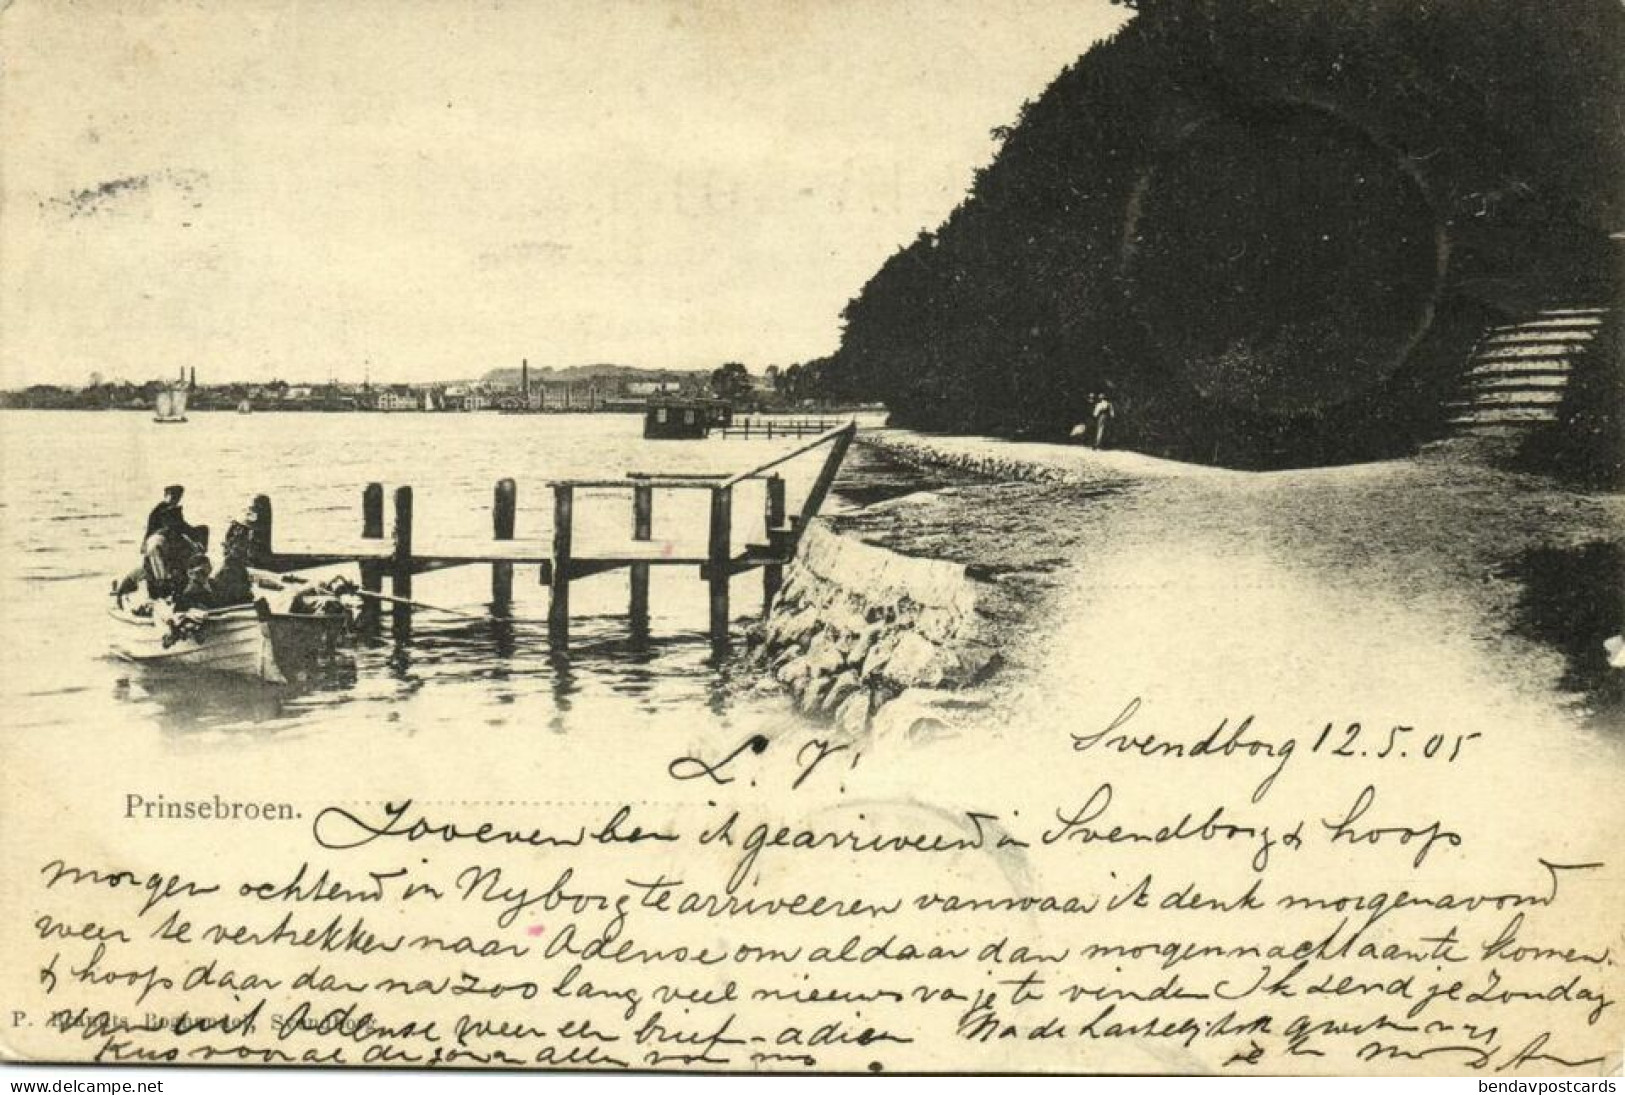 Svendborg 12.5.05
L. V!
Prinsebroen.
Zooeven ben ik gearriveerd in Svendborg & hoop
morgen ochtend in Nyborg te arriveeren vanwaar ik denk morgenavond
weer te vertrekken naar Odense om aldaar dan morgennacht aan te komen.
& hoop daar dan na zoo lang veel nieuws van je te vinden Ik zend je Zondag
P. Boghandel, Svendborg.
van uit Odense weer een brief - adieu Na de hartelijkste groeten
Kus vooral de allen van me